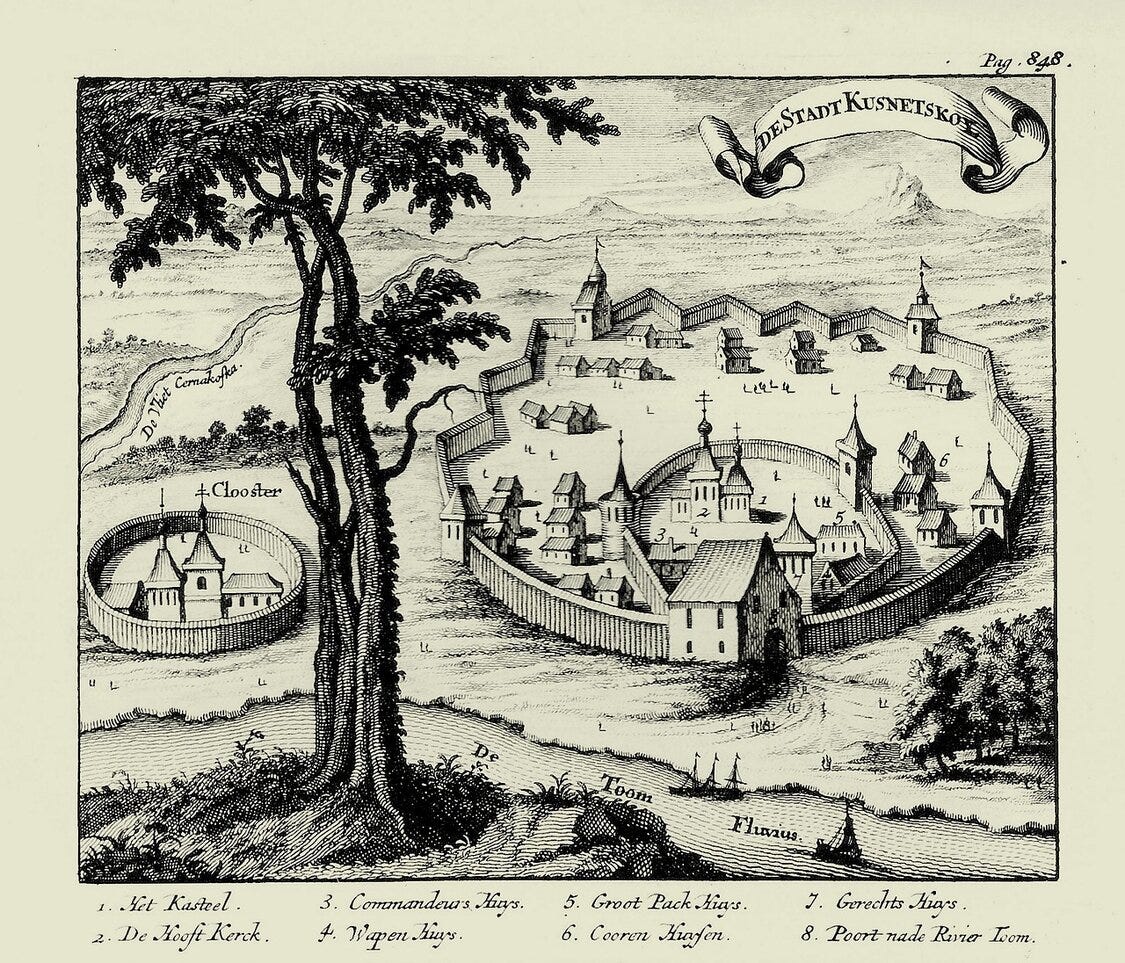 Pag. 848.
DE STADT KUSNETSKOY
De Vliet Cernakofka.
Clooster
1
2
3
4
5
6
8
De Toom Fluvius.
1. Het Kasteel. 3. Commandeurs Huys. 5. Groot Pack Huys. 7. Gerechts Huys.
2. De Hooft Kerck. 4. Wapen Huys. 6. Cooren Huysen. 8. Poort nade Rivier Toom.